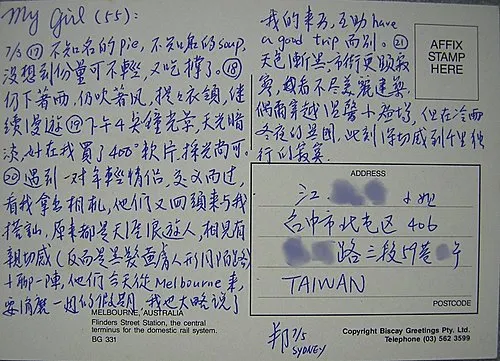 My Girl (55):
7/5 ⑰ 不知名的pie, 不知名的soup,
沒想到份量可不輕,又吃撐了。⑱
仍下著雨,仍吹著風,提提衣領,繼
續漫遊 ⑲ 下午4點鐘光景,天光暗
淡,好在我買了400°軟片,採光尚可.
⑳ 遇到一對年輕情侶,交叉而過,
看我拿台相机,他們又回頭來与我
搭訕,原來都是天涯浪遊人,相見有
親切感(反而是黑髮黃膚人形同陌路)
十聊一陣,他們今天從Melbourne來,
要消磨一週的假期,我也大略說了
我的來去,互助have
a good trip 而別。㉑
天色漸黑,市街更顯寂
寞,我看不盡美麗建築,
偶爾穿越溫馨小
冬夜的
行的寂寞.
AFFIX
STAMP
HERE
ADDRESS
江 小姐
台中市北屯区 406
路三段59巷 号
TAIWAN
POSTCODE
MELBOURNE, AUSTRALIA
Flinders Street Station, the central
terminus for the domestic rail system.
BG 331
邦 7/5
SYDNEY
Copyright Biscay Greetings Pty. Ltd.
Telephone (03) 562 3599